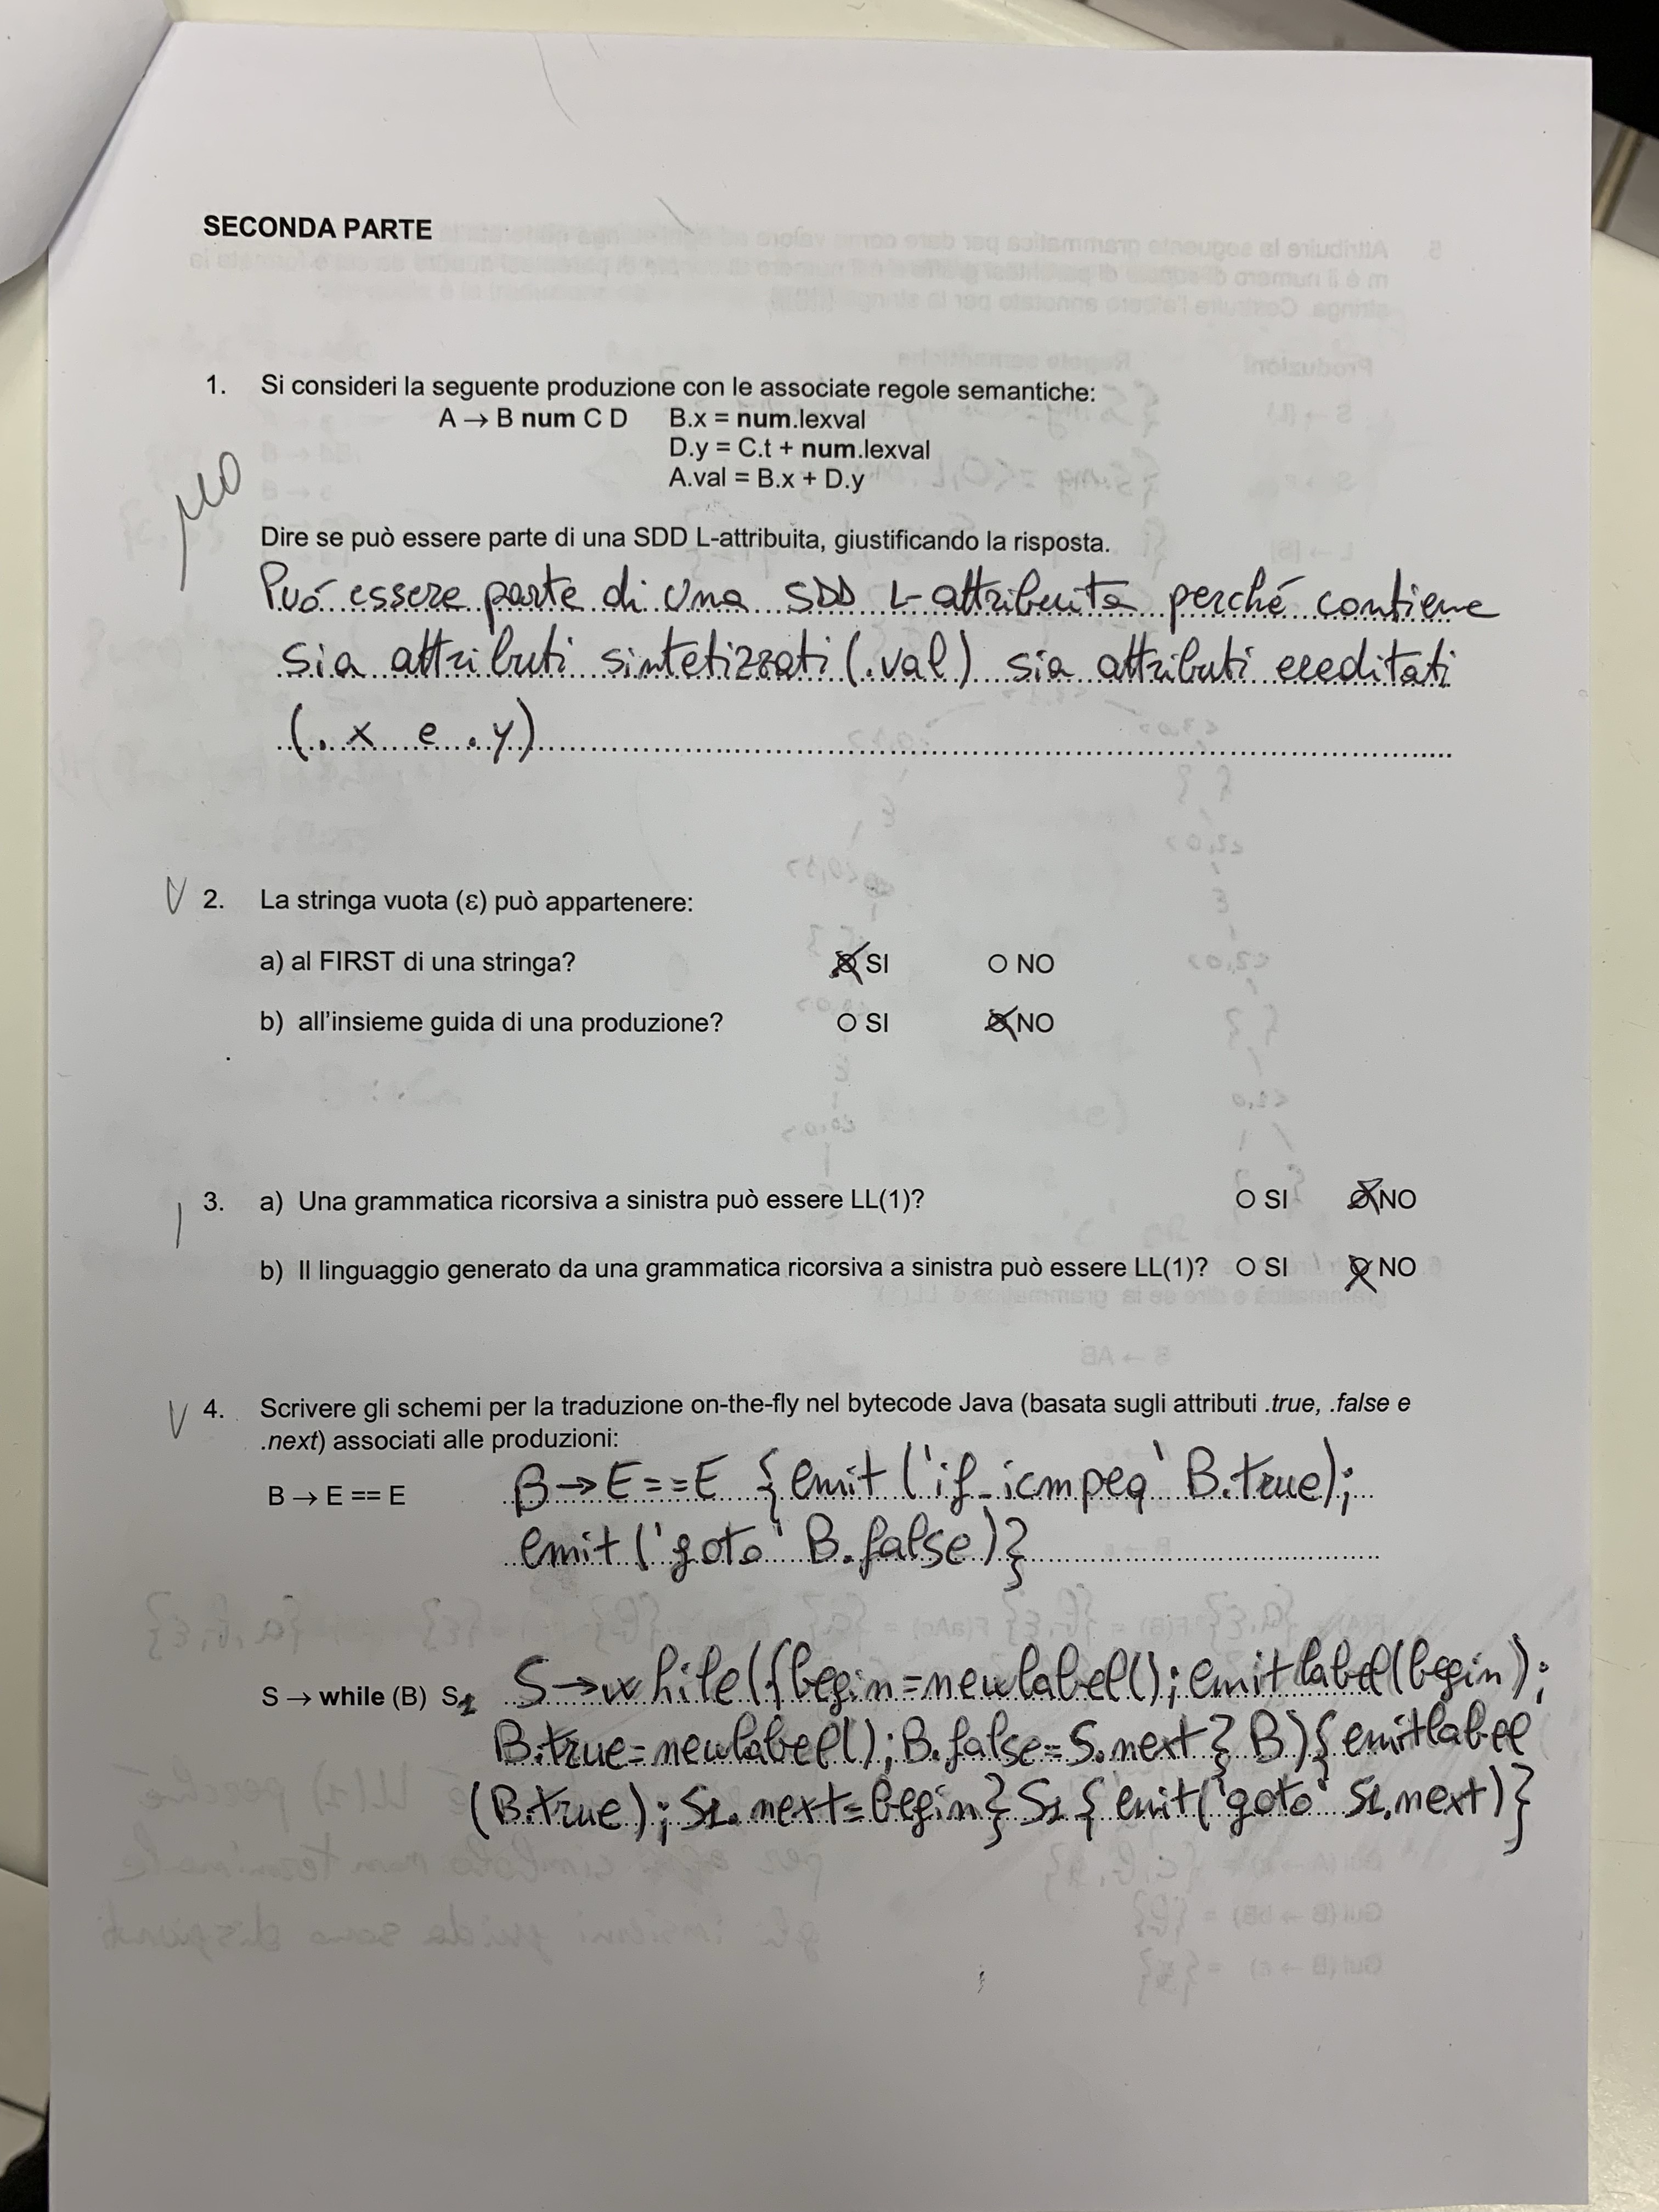 SECONDA PARTE
1. Si consideri la seguente produzione con le associate regole semantiche:
A → B num C D B.x = num.lexval
D.y = C.t + num.lexval
A.val = B.x + D.y
no
Dire se può essere parte di una SDD L-attribuita, giustificando la risposta.
Puó essere parte di una SDD L-attribuita perché contiene
sia attributi sintetizzati (.val) sia attributi ereditati
(.x e .y)
V 2. La stringa vuota (ε) può appartenere:
a) al FIRST di una stringa? SI NO
b) all'insieme guida di una produzione? SI NO
3. a) Una grammatica ricorsiva a sinistra può essere LL(1)? SI NO
b) Il linguaggio generato da una grammatica ricorsiva a sinistra può essere LL(1)? SI NO
V 4. Scrivere gli schemi per la traduzione on-the-fly nel bytecode Java (basata sugli attributi .true, .false e
.next) associati alle produzioni:
B → E == E B→E==E {emit('if_icmpeq' B.true);
emit('goto' B.false)}
S → while (B) S1 S→while({begin=newlabel();emitlabel(begin);
B.true=newlabel();B.false=S.next}B){emitlabel
(B.true);S1.next=begin}S1{emit('goto' S1.next)}